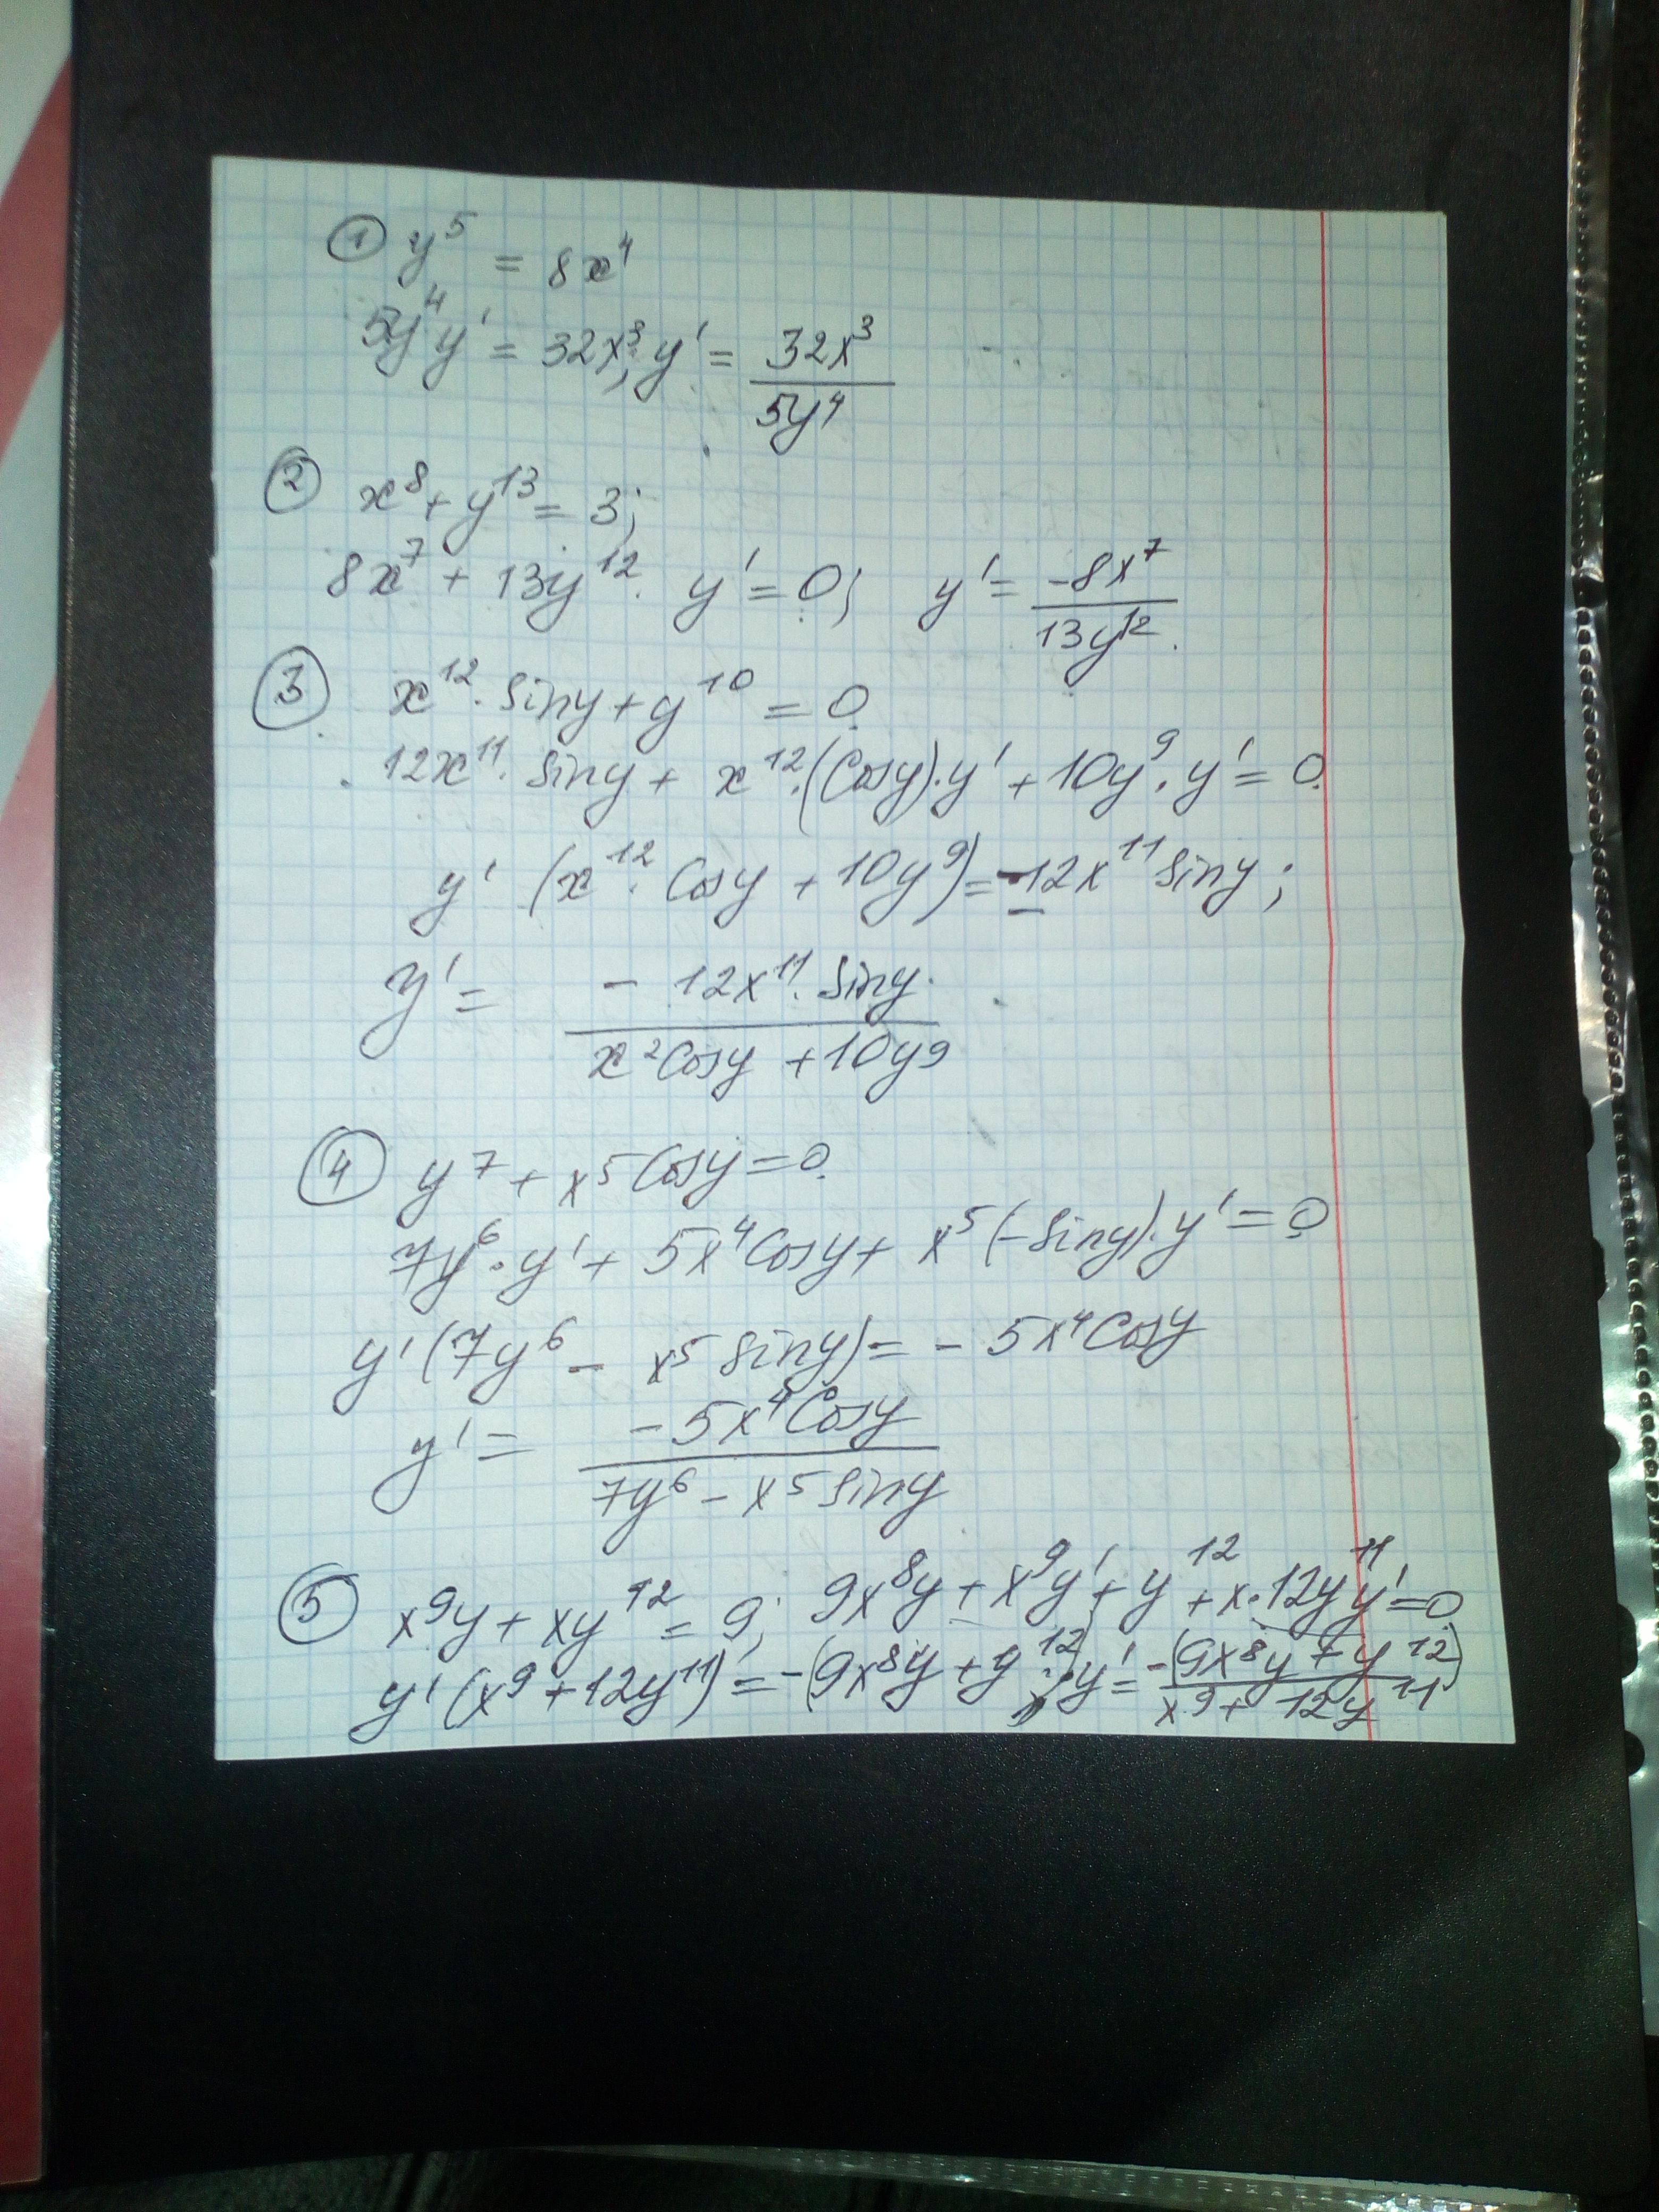 ① y⁵ = 8x⁴
5y⁴y' = 32x³; y' = 32x³/5y⁴
② x⁸ + y¹³ = 3;
8x⁷ + 13y¹² · y' = 0; y' = -8x⁷/13y¹².
③ x¹² · siny + y¹⁰ = 0
12x¹¹ · siny + x¹² · (Cosy) · y' + 10y⁹ · y' = 0
y' (x¹² · Cosy + 10y⁹) = -12x¹¹ siny;
y' = - 12x¹¹ · siny/x²Cosy + 10y⁹
④ y⁷ + x⁵Cosy = 0
7y⁶ · y' + 5x⁴Cosy + x⁵(-siny) · y' = 0
y'(7y⁶ - x⁵ siny) = - 5x⁴Cosy
y' = -5x⁴Cosy/7y⁶ - x⁵ siny
⑤ x⁹y + xy¹² = 9; 9x⁸y + x⁹y' + y¹² + x · 12y¹¹y' = 0
y'(x⁹ + 12y¹¹) = -(9x⁸y + y¹²); y' = -(9x⁸y + y¹²)/x⁹ + 12y¹¹